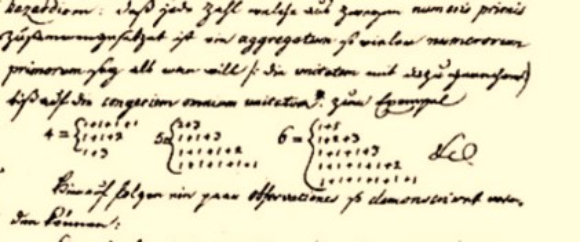 hazardiren: daß jede Zahl welche aus zweyen numeris primis
zusammengesetzet ist ein aggregatum so vieler numerorum
primorum sey als man will /: die unitatem mit dazu gerechnet
biß auf die congeriem omnium unitatum; zum Exempel
4 = { 1+1+1+1 5 = { 2+3 6 = { 1+5
1+1+2 1+1+3 1+2+3
1+3 1+1+1+2 1+1+1+3
1+1+1+1+1 1+1+1+1+2
1+1+1+1+1+1 &c
Hierauf folgen ein paar observationes so demonstriret wer-
den können: